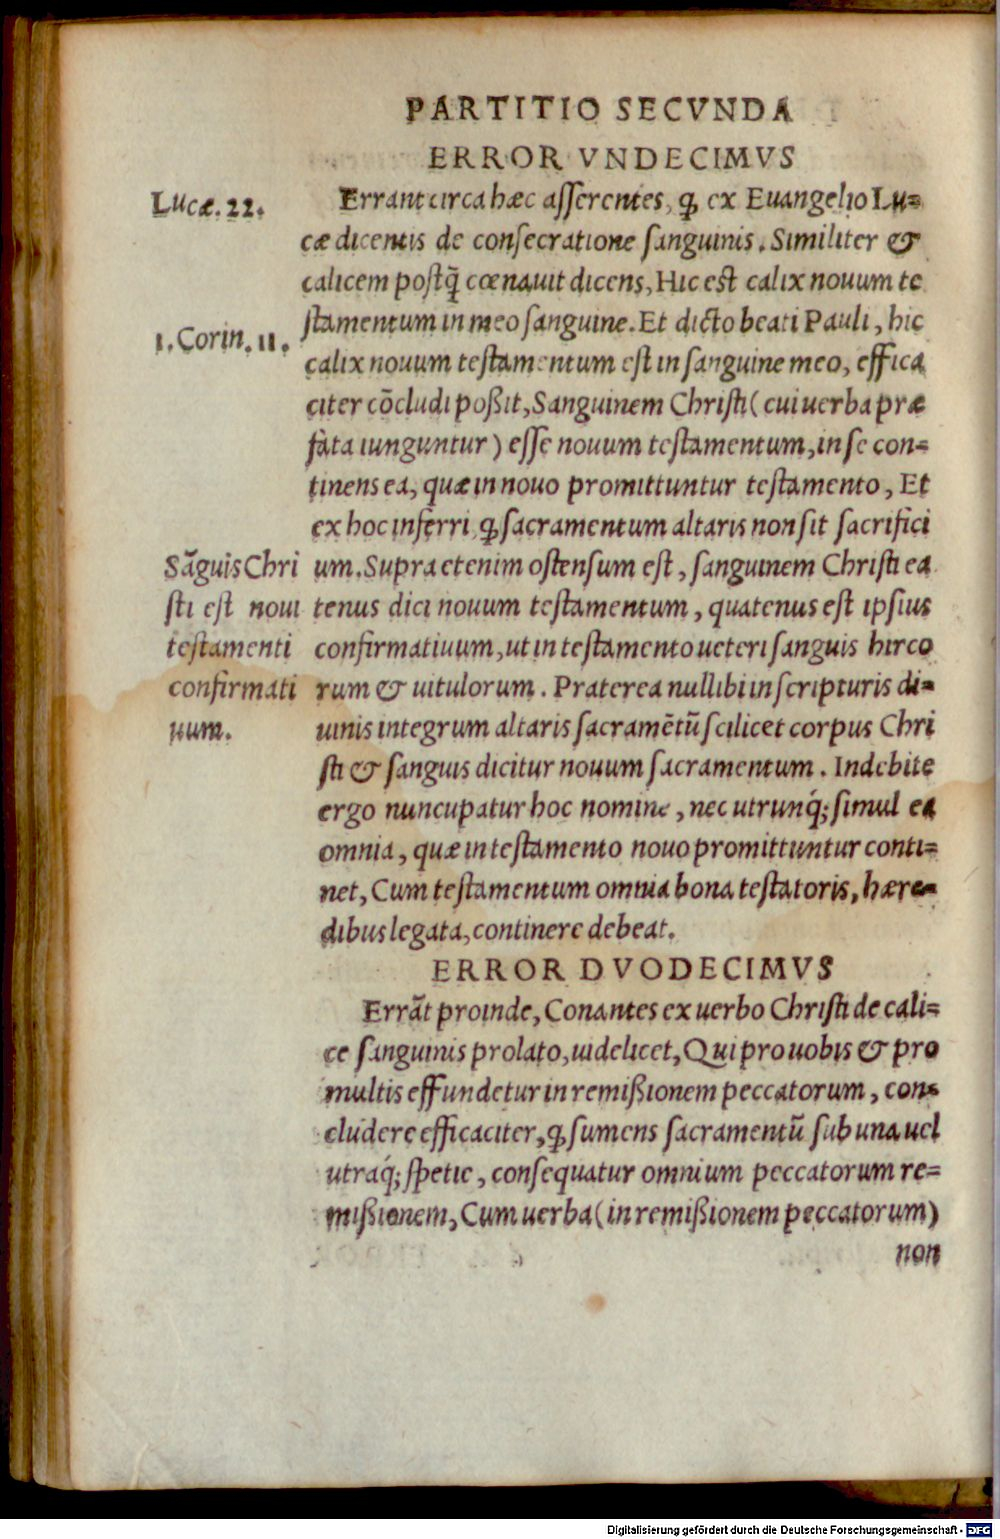 PARTITIO SECVNDA
ERROR VNDECIMVS
Lucæ. 22.
Errant circa hæc asserentes, ꝙ ex Euangelio Lu=
cæ dicentis de consecratione sanguinis. Similiter &
calicem postq̃ cœnauit dicens, Hic est calix nouum te
stamentum in meo sanguine. Et dicto beati Pauli, hic
1. Corin. 11.
calix nouum testamentum est in sanguine meo, effica
citer cōcludi poßit, Sanguinem Christi (cui uerba præ
fata iunguntur) esse nouum testamentum, in se con=
tinens ea, quæ in nouo promittuntur testamento, Et
ex hoc inferri, ꝙ sacramentum altaris non sit sacrifici
um. Supra etenim ostensum est, sanguinem Christi ea
tenus dici nouum testamentum, quatenus est ipsius
confirmatiuum, ut in testamento ueteri sanguis hirco
rum & uitulorum. Præterea nullibi in scripturis di=
uinis integrum altaris sacramētū scilicet corpus Chri
sti & sanguis dicitur nouum sacramentum. Indebite
ergo nuncupatur hoc nomine, nec utrunq́; simul ea
omnia, quæ in testamento nouo promittuntur conti=
net, Cum testamentum omnia bona testatoris, hære=
dibus legata, continere debeat.
Sāguis Chri
sti est noui
testamenti
confirmati
uum.
ERROR DVODECIMVS
Errāt proinde, Conantes ex uerbo Christi de cali=
ce sanguinis prolato, uidelicet, Qui pro uobis & pro
multis effundetur in remißionem peccatorum, con=
cludere efficaciter, ꝙ sumens sacramentū sub una uel
utraq́; specie, consequatur omnium peccatorum re=
mißionem, Cum uerba (in remißionem peccatorum)
non
Digitalisierung gefördert durch die Deutsche Forschungsgemeinschaft - DFG